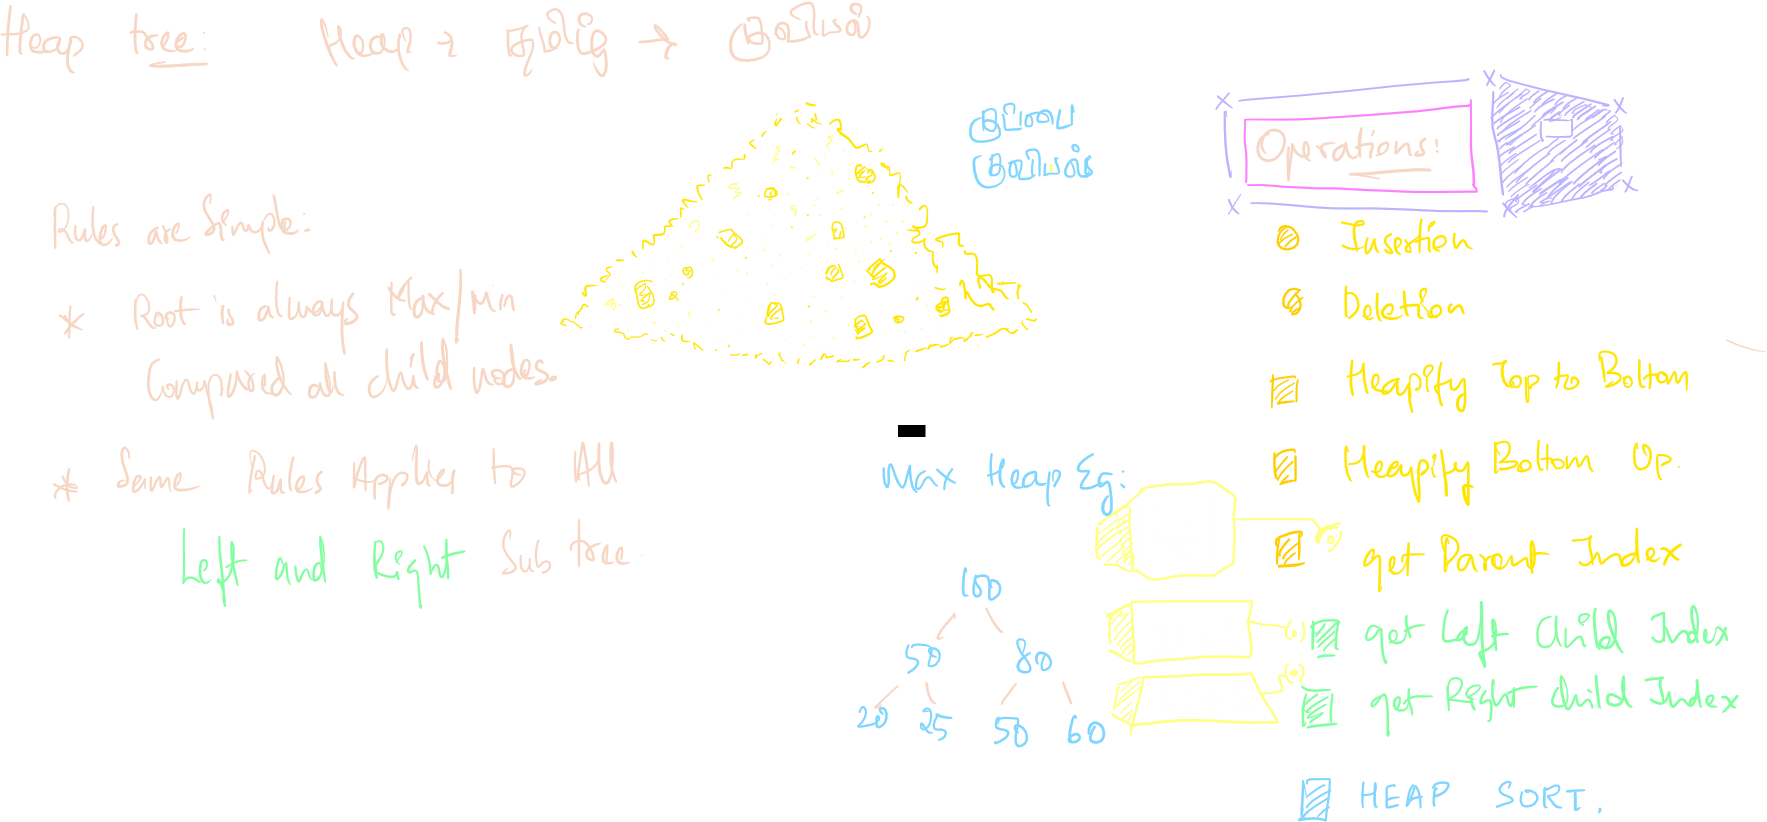 Heap tree: Heap → தமிழ் → குவியல்
குப்பை
குவியல்
Rules are Simple:
* Root is always Max/Min
Compared all child nodes.
* Same Rules Applies to All
Left and Right Sub tree
Max Heap Eg:
100
50 80
20 25 50 60
Operations:
Insertion
Deletion
Heapify Top to Bottom
Heapify Bottom Up.
get Parent Index
get Left Child Index
get Right Child Index
HEAP SORT.